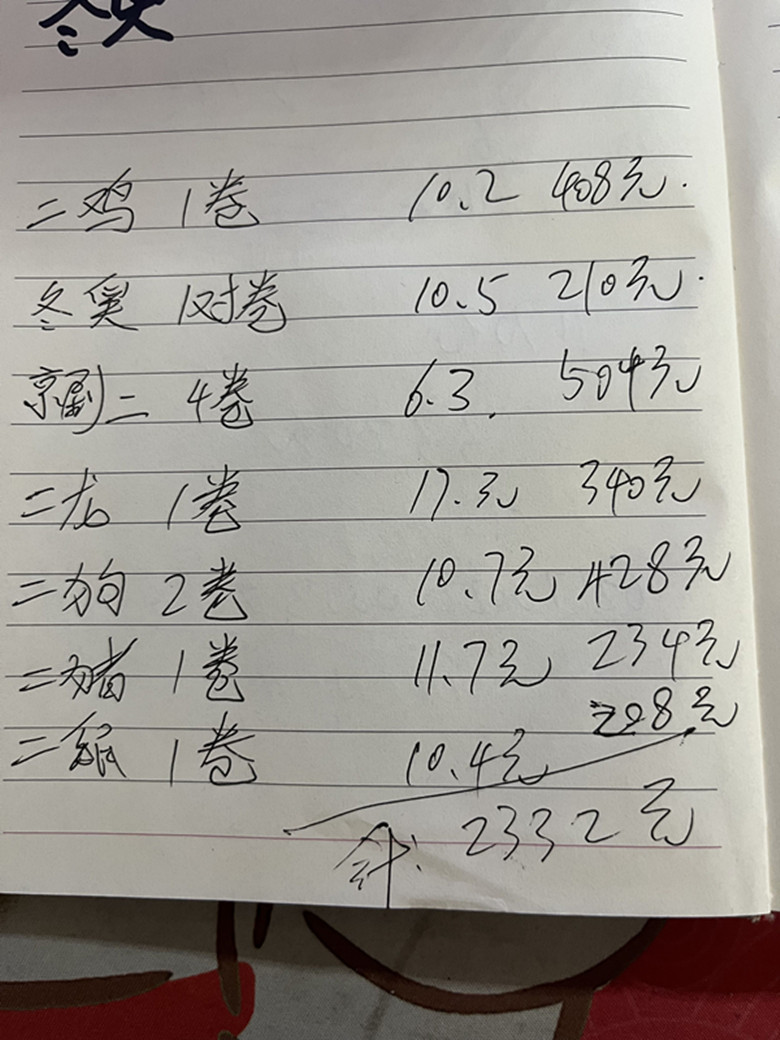 冬奥
二鸡 1卷 10.2 408元.
冬奥 1对卷 10.5 210元.
京剧二 4卷 6.3. 504元
二龙 1卷 17.元 340元
二狗 2卷 10.7元 428元
二猪 1卷 11.7元 234元
二鼠 1卷 10.4元 208元
合计: 2332元